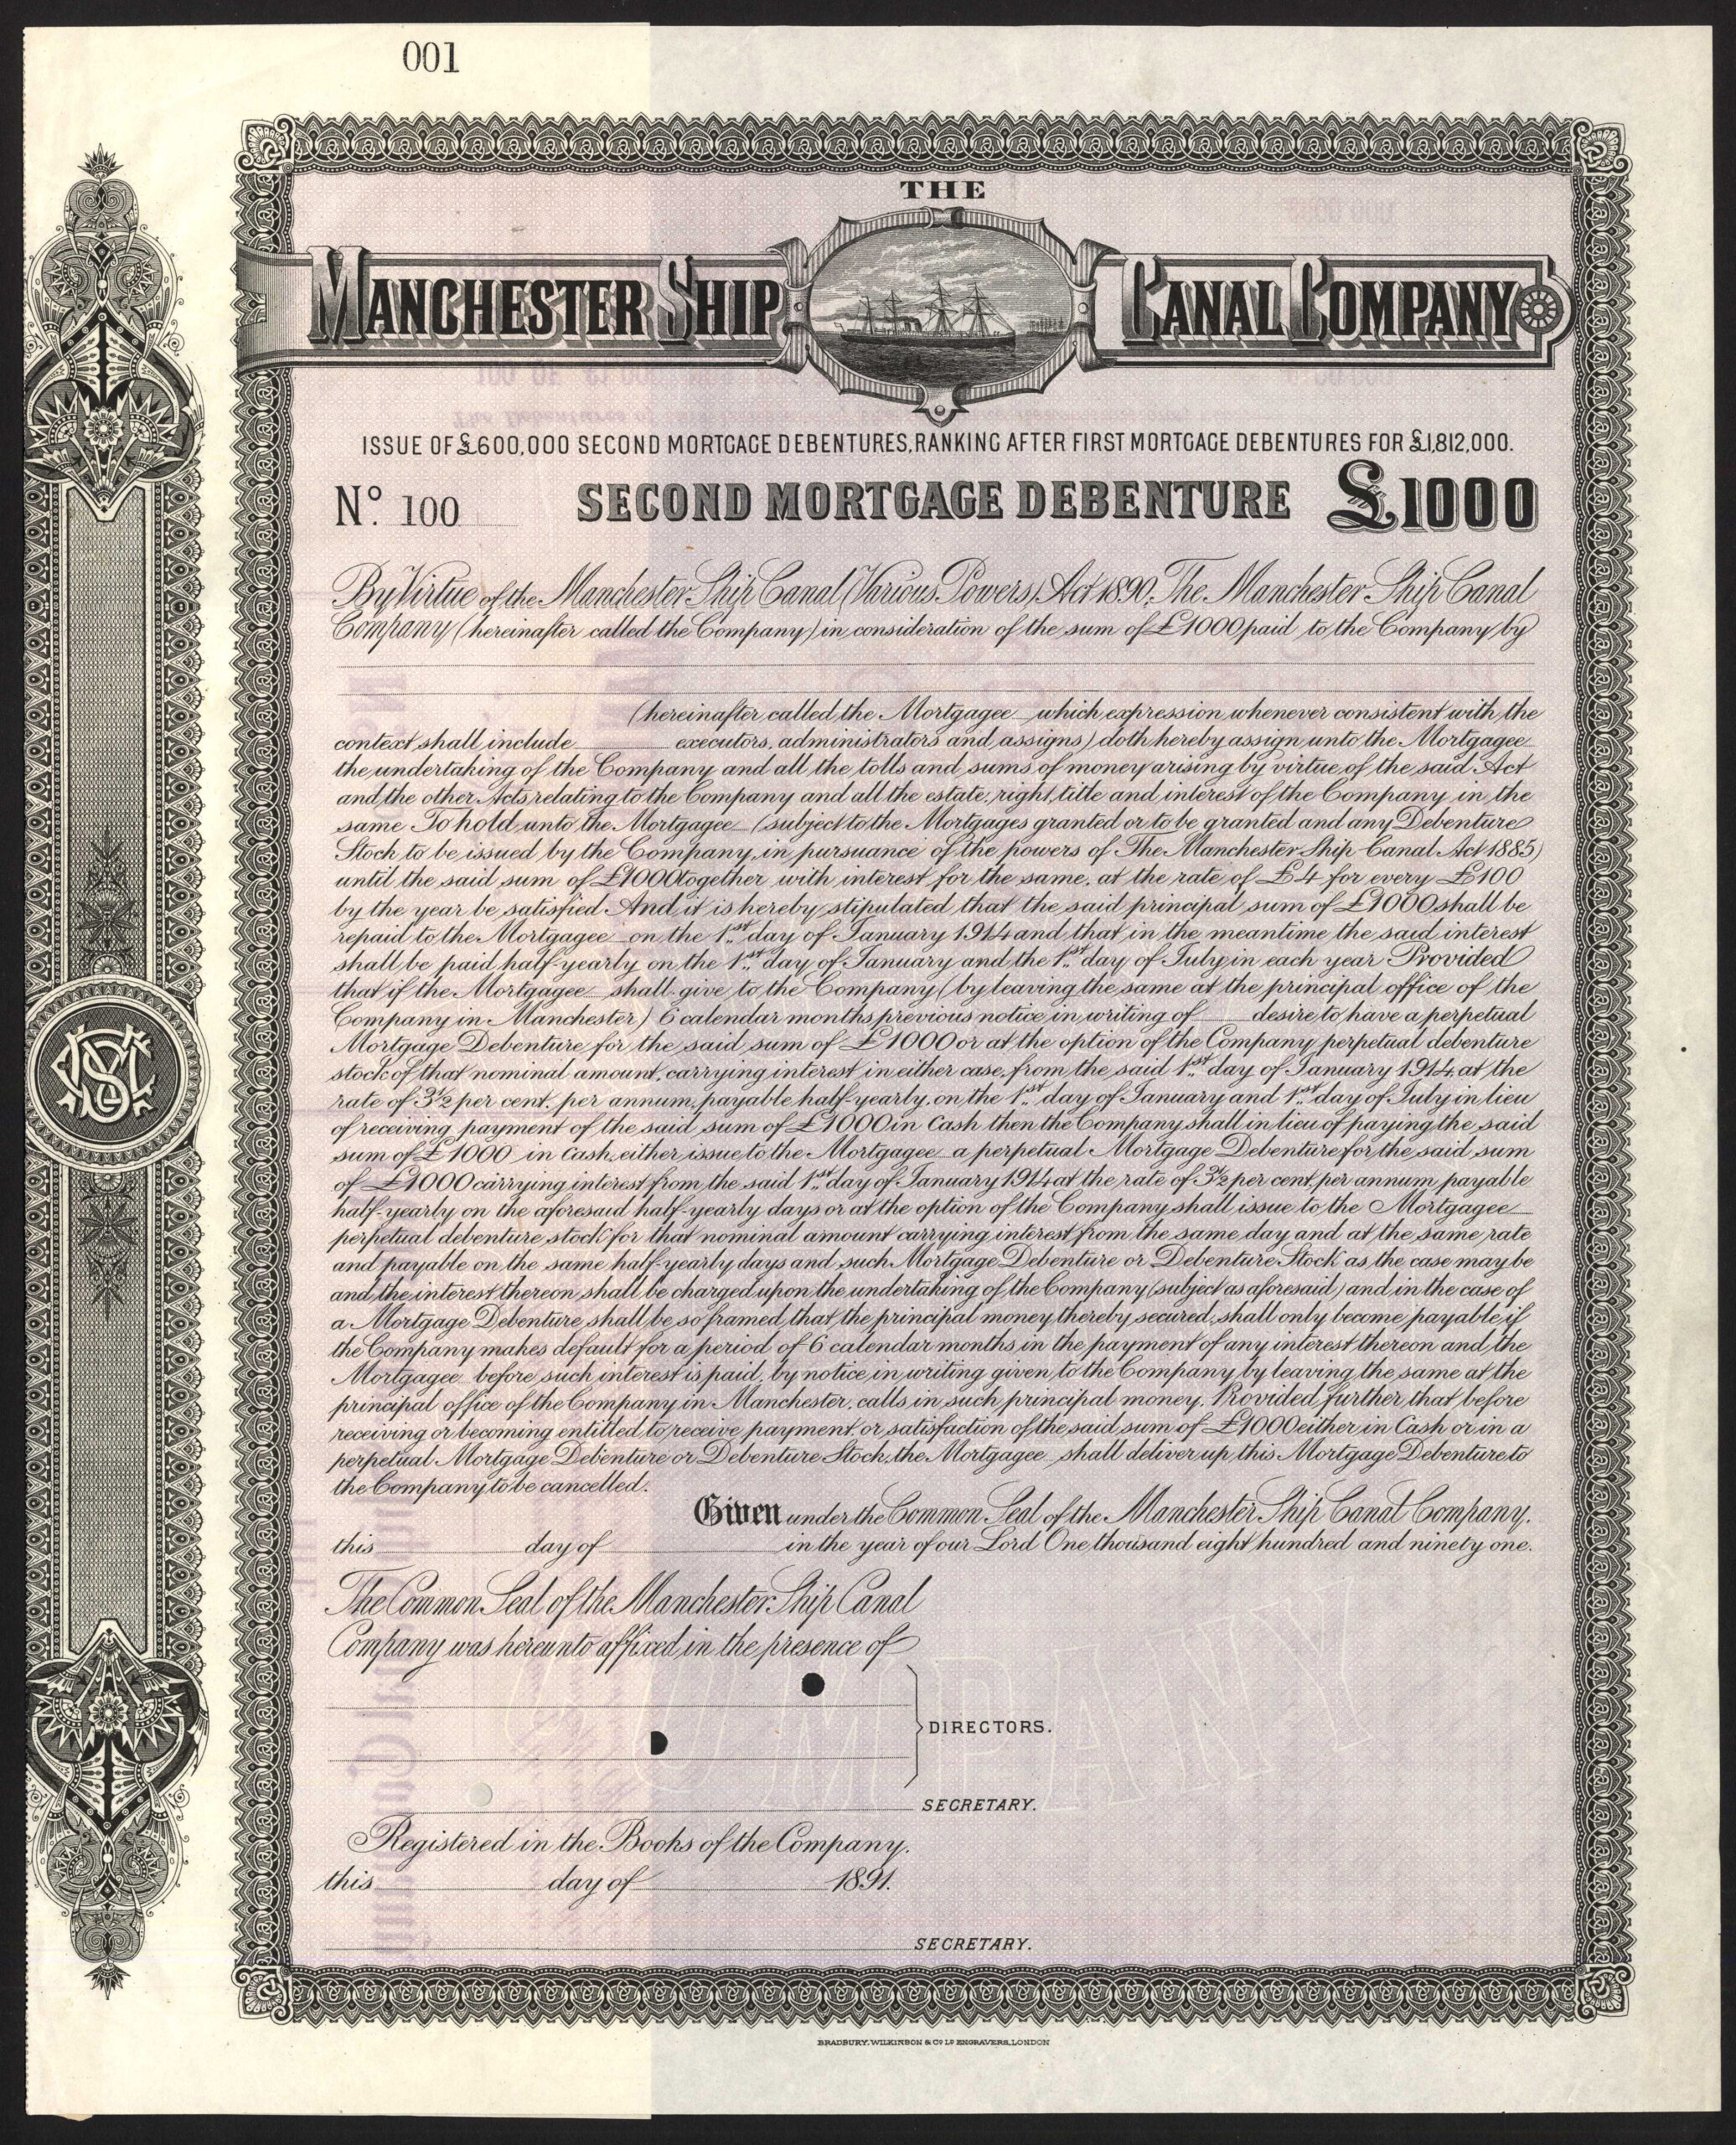 001
THE
MANCHESTER SHIP CANAL COMPANY
ISSUE OF £600,000 SECOND MORTGAGE DEBENTURES, RANKING AFTER FIRST MORTGAGE DEBENTURES FOR £1,812,000.
No. 100 SECOND MORTGAGE DEBENTURE £1000
By Virtue of the Manchester Ship Canal (Various Powers) Act 1890, The Manchester Ship Canal
Company (hereinafter called the Company) in consideration of the sum of £1000 paid to the Company by
(hereinafter called the Mortgagee which expression whenever consistent with the
context shall include executors, administrators and assigns) doth hereby assign unto the Mortgagee
the undertaking of the Company and all the tolls and sums of money arising by virtue of the said Act
and the other Acts relating to the Company and all the estate, right, title and interest of the Company in the
same To hold unto the Mortgagee (subject to the Mortgages granted or to be granted and any Debenture
Stock to be issued by the Company in pursuance of the powers of The Manchester Ship Canal Act 1885)
until the said sum of £1000 together with interest for the same, at the rate of £4 for every £100
by the year be satisfied And it is hereby stipulated that the said principal sum of £1000 shall be
repaid to the Mortgagee on the 1st day of January 1914 and that in the meantime the said interest
shall be paid half-yearly on the 1st day of January and the 1st day of July in each year Provided
that if the Mortgagee shall give to the Company (by leaving the same at the principal office of the
Company in Manchester) 6 calendar months previous notice in writing of desire to have a perpetual
Mortgage Debenture for the said sum of £1000 or at the option of the Company perpetual debenture
stock of that nominal amount, carrying interest in either case, from the said 1st day of January 1914, at the
rate of 3½ per cent. per annum, payable half-yearly, on the 1st day of January and 1st day of July in lieu
of receiving payment of the said sum of £1000 in Cash then the Company shall in lieu of paying the said
sum of £1000 in Cash, either issue to the Mortgagee a perpetual Mortgage Debenture for the said sum
of £1000 carrying interest from the said 1st day of January 1914 at the rate of 3½ per cent, per annum payable
half-yearly on the aforesaid half-yearly days or at the option of the Company shall issue to the Mortgagee
perpetual debenture stock for that nominal amount carrying interest from the same day and at the same rate
and payable on the same half-yearly days and such Mortgage Debenture or Debenture Stock as the case may be
and the interest thereon shall be charged upon the undertaking of the Company (subject as aforesaid) and in the case of
a Mortgage Debenture shall be so framed that the principal money thereby secured, shall only become payable if
the Company makes default for a period of 6 calendar months in the payment of any interest thereon and the
Mortgagee before such interest is paid, by notice in writing given to the Company by leaving the same at the
principal office of the Company in Manchester, calls in such principal money. Provided further that before
receiving or becoming entitled to receive payment or satisfaction of the said sum of £1000 either in Cash or in a
perpetual Mortgage Debenture or Debenture Stock, the Mortgagee shall deliver up this Mortgage Debenture to
the Company to be cancelled.
Given under the Common Seal of the Manchester Ship Canal Company.
this day of in the year of our Lord One thousand eight hundred and ninety one.
The Common Seal of the Manchester Ship Canal
Company was hereunto affixed in the presence of
DIRECTORS.
SECRETARY.
Registered in the Books of the Company.
this day of 1891.
SECRETARY.
COMPANY
BRADBURY, WILKINSON & Co Ld ENGRAVERS, LONDON